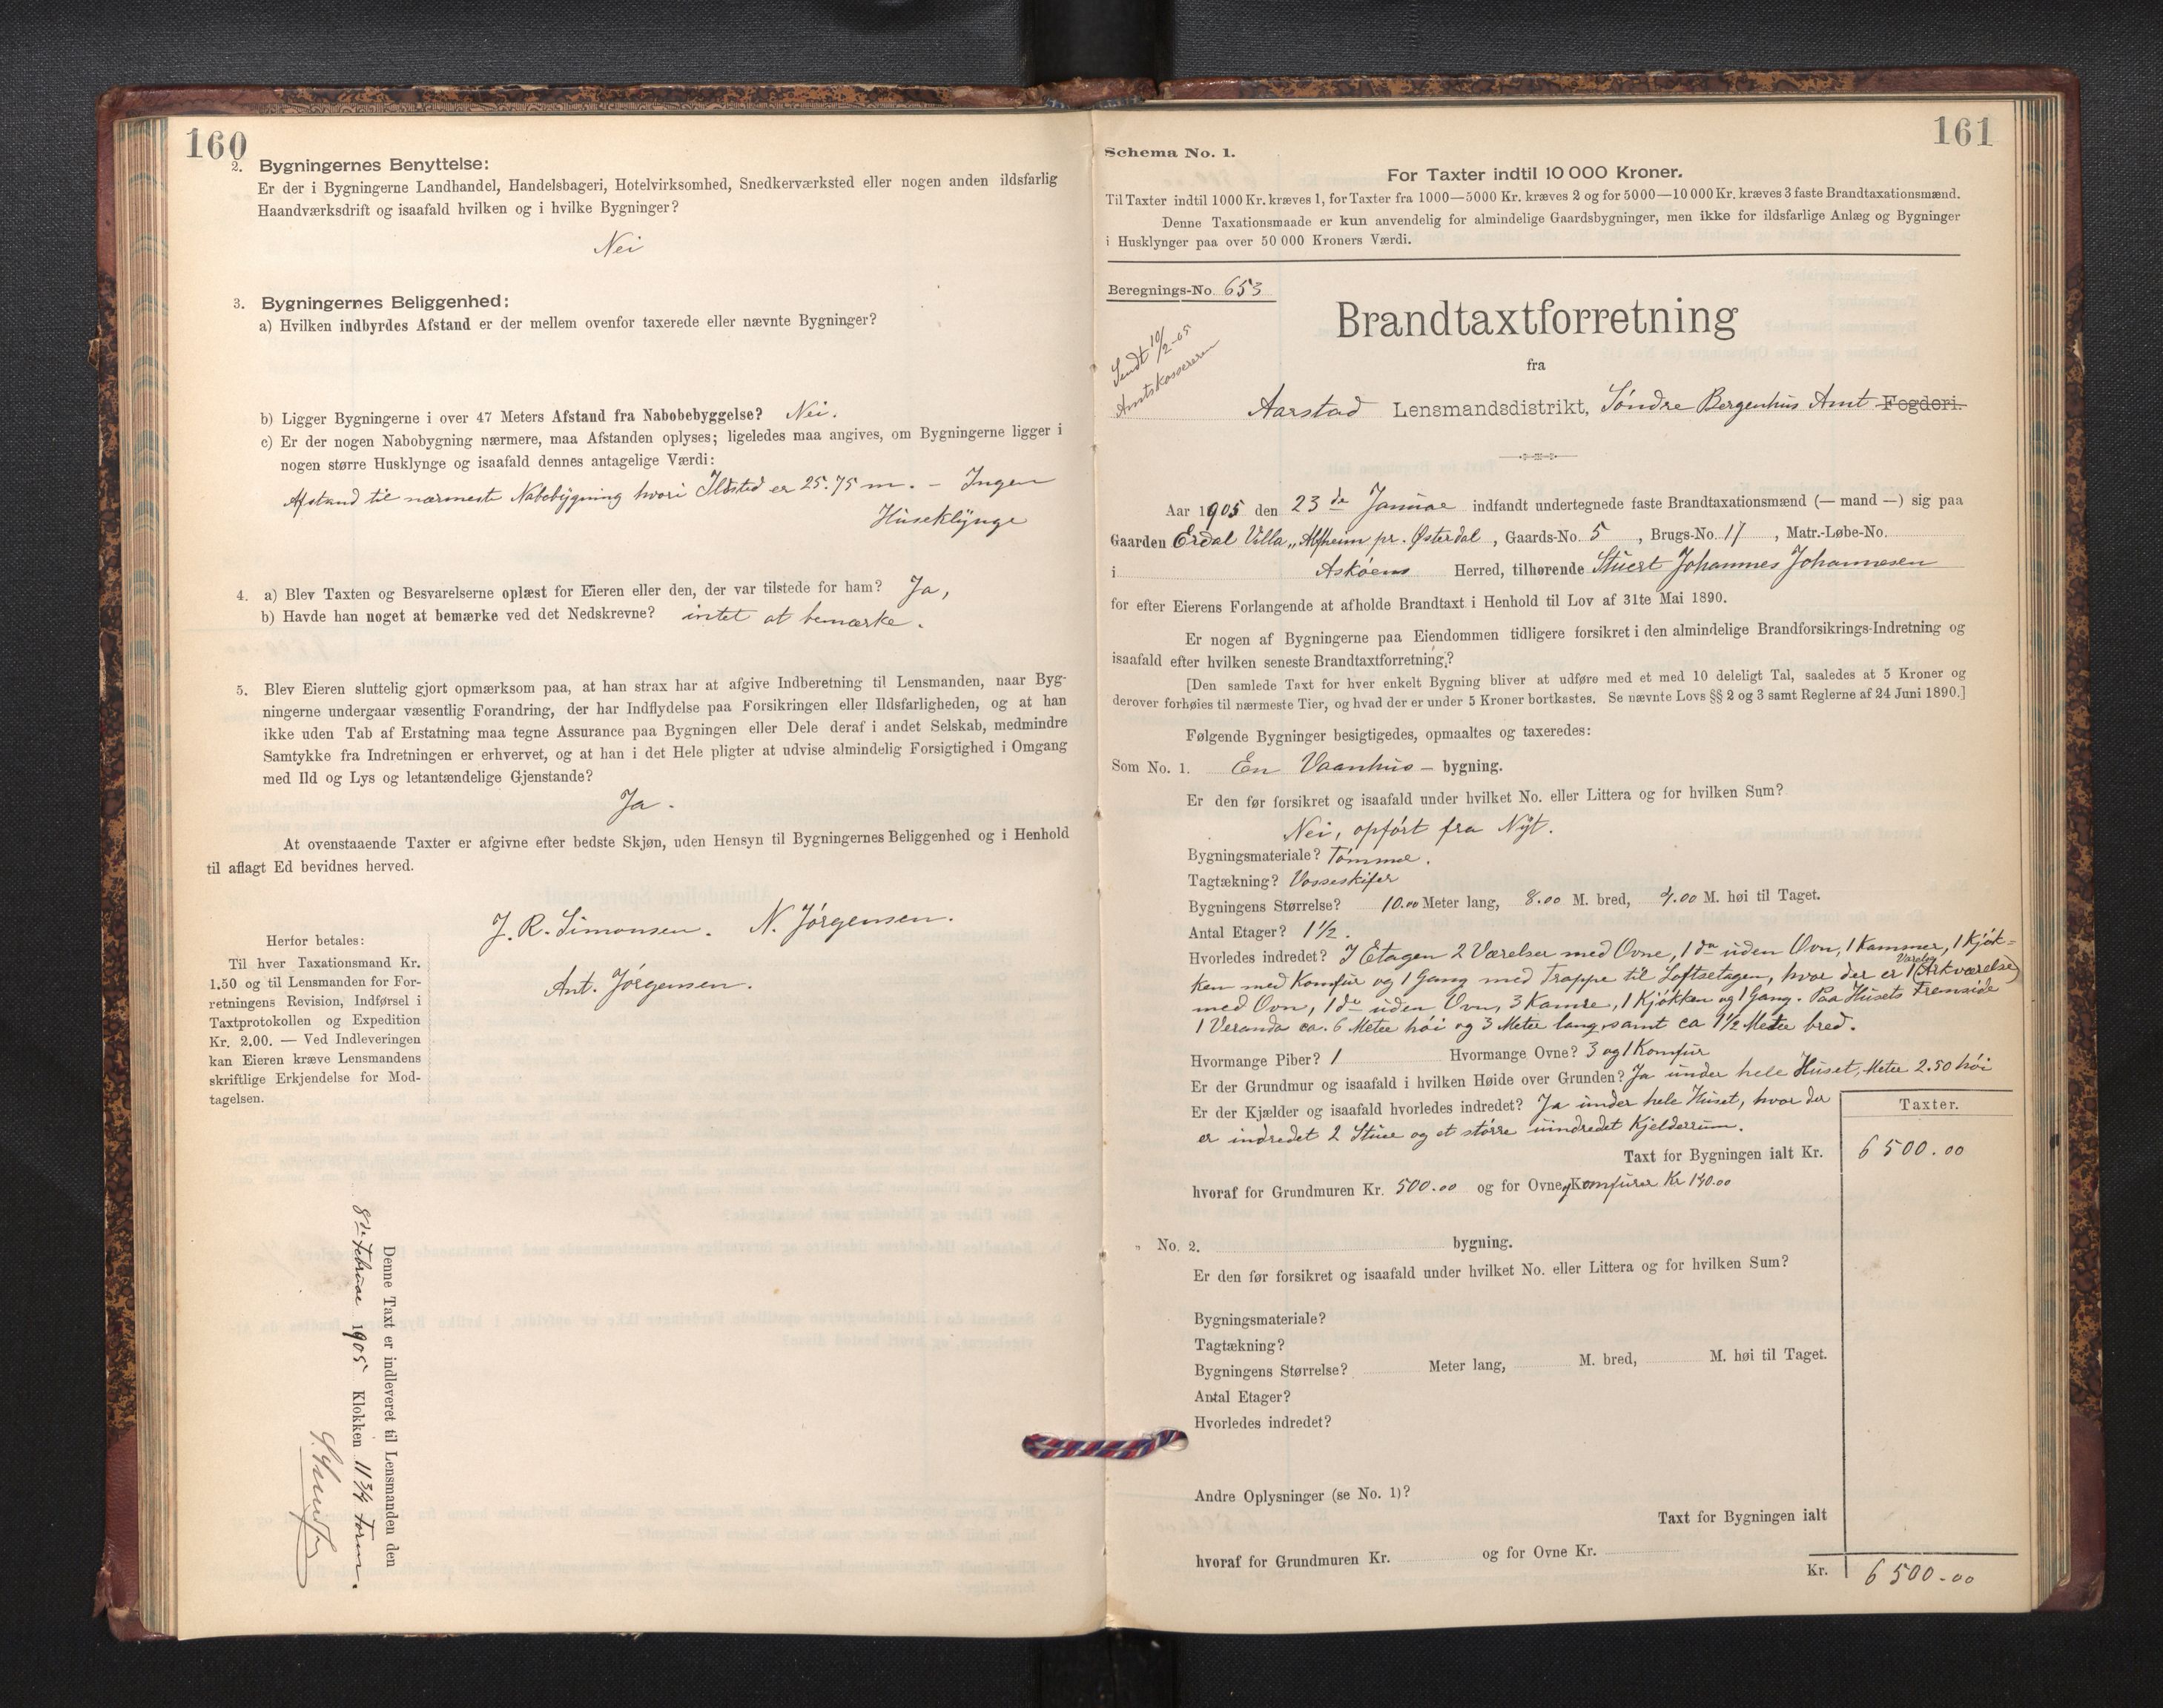 160
2. Bygningernes Benyttelse:
Er der i Bygningerne Landhandel, Handelsbageri, Hotelvirksomhed, Snedkerværksted eller nogen anden ildsfarlig
Haandværksdrift og isaafald hvilken og i hvilke Bygninger?
Nei
3. Bygningernes Beliggenhed:
a) Hvilken indbyrdes Afstand er der mellem ovenfor taxerede eller nævnte Bygninger?
b) Ligger Bygningerne i over 47 Meters Afstand fra Nabobebyggelse? Nei.
c) Er der nogen Nabobygning nærmere, maa Afstanden oplyses; ligeledes maa angives, om Bygningerne ligger i
nogen større Husklynge og isaafald dennes antagelige Værdi:
Afstand til nærmeste Nabobygning hvori Ildsted er 25.75 m. – Ingen
Huseklynge
4. a) Blev Taxten og Besvarelserne oplæst for Eieren eller den, der var tilstede for ham? Ja,
b) Havde han noget at bemærke ved det Nedskrevne? intet at bemærke.
5. Blev Eieren sluttelig gjort opmærksom paa, at han strax har at afgive Indberetning til Lensmanden, naar Byg-
ningerne undergaar væsentlig Forandring, der har Indflydelse paa Forsikringen eller Ildsfarligheden, og at han
ikke uden Tab af Erstatning maa tegne Assurance paa Bygningen eller Dele deraf i andet Selskab, medmindre
Samtykke fra Indretningen er erhvervet, og at han i det Hele pligter at udvise almindelig Forsigtighed i Omgang
med Ild og Lys og letantændelige Gjenstande?
Ja.
At ovenstaaende Taxter er afgivne efter bedste Skjøn, uden Hensyn til Bygningernes Beliggenhed og i Henhold
til aflagt Ed bevidnes herved.
J. R. Simonsen. N. Jørgensen.
Ant. Jørgensen.
Herfor betales:
Til hver Taxationsmand Kr.
1.50 og til Lensmanden for For-
retningens Revision, Indførsel i
Taxtprotokollen og Expedition
Kr. 2.00. — Ved Indleveringen
kan Eieren kræve Lensmandens
skriftlige Erkjendelse for Mod-
tagelsen.
Denne Taxt er indleveret til Lensmanden den
8de Februar 1905 Klokken 11 3/4 Form.
161
Schema No. 1.
For Taxter indtil 10 000 Kroner.
Til Taxter indtil 1000 Kr. kræves 1, for Taxter fra 1000—5000 Kr. kræves 2 og for 5000—10 000 Kr. kræves 3 faste Brandtaxationsmænd.
Denne Taxationsmaade er kun anvendelig for almindelige Gaardsbygninger, men ikke for ildsfarlige Anlæg og Bygninger
i Husklynger paa over 50 000 Kroners Værdi.
Beregnings-No. 653
Sendt 10/2-05
Amtskassereren
Brandtaxtforretning
fra
Aarstad Lensmandsdistrikt, Søndre Bergenhus Amt Fogderi.
Aar 1905 den 23de Januar indfandt undertegnede faste Brandtaxationsmænd (— mand —) sig paa
Gaarden Erdal Villa „Alfheim pr. Østerdal, Gaards-No. 5, Brugs-No. 17, Matr.-Løbe-No.
i Askøens Herred, tilhørende Stuert Johannes Johannesen
for efter Eierens Forlangende at afholde Brandtaxt i Henhold til Lov af 31te Mai 1890.
Er nogen af Bygningerne paa Eiendommen tidligere forsikret i den almindelige Brandforsikrings-Indretning og
isaafald efter hvilken seneste Brandtaxtforretning?
[Den samlede Taxt for hver enkelt Bygning bliver at udføre med et med 10 deleligt Tal, saaledes at 5 Kroner og
derover forhøies til nærmeste Tier, og hvad der er under 5 Kroner bortkastes. Se nævnte Lovs §§ 2 og 3 samt Reglerne af 24 Juni 1890.]
Følgende Bygninger besigtigedes, opmaaltes og taxeredes:
Som No. 1. En Vaanhus – bygning.
Er den før forsikret og isaafald under hvilket No. eller Littera og for hvilken Sum?
Nei, opført fra Nyt.
Bygningsmateriale? Tømmer.
Tagtækning? Vosseskifer
Bygningens Størrelse? 10.00 Meter lang, 8.00 M. bred, 4.00 M. høi til Taget.
Antal Etager? 1½.
Hvorledes indredet? I Etagen 2 Værelser med Ovne, 1 do uden Ovn, 1 Kammer, 1 Kjøk-
ken med Komfur og 1 Gang med Trappe til Loftsetagen, hvor der er 1 (Arkværelse)
med Ovn, 1 do uden Ovn, 3 Kamre, 1 Kjøkken og 1 Gang. Paa Husets Fremside
1 Veranda ca. 6 Meter høi og 3 Meter lang, samt ca 1½ Meter bred.
Hvormange Piber? 1 Hvormange Ovne? 3 og 1 Komfur
Er der Grundmur og isaafald i hvilken Høide over Grunden? Ja under hele Huset, Meter 2.50 høi
Er der Kjælder og isaafald hvorledes indredet? Ja under hele Huset, hvor der
er indredet 2 Stuer og et større uindredet Kjelderrum.
Taxter.
Taxt for Bygningen ialt Kr. 6500.00
hvoraf for Grundmuren Kr. 500.00 og for Ovne og Komfurer Kr 140.00
„ No. 2. bygning.
Er den før forsikret og isaafald under hvilket No. eller Littera og for hvilken Sum?
Bygningsmateriale?
Tagtækning?
Bygningens Størrelse? Meter lang, M. bred, M. høi til Taget.
Antal Etager?
Hvorledes indredet?
Andre Oplysninger (se No. 1)?
Taxt for Bygningen ialt
hvoraf for Grundmuren Kr. og for Ovne Kr.
Kr. 6500.00